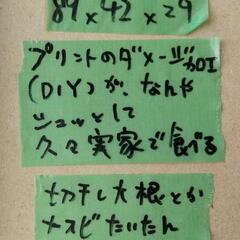 89×42×29
プリントのダメージ加工
(DIY)が、なんや
シュッとして
久々実家で食べる
切干し大根とか
ナスビたいたん